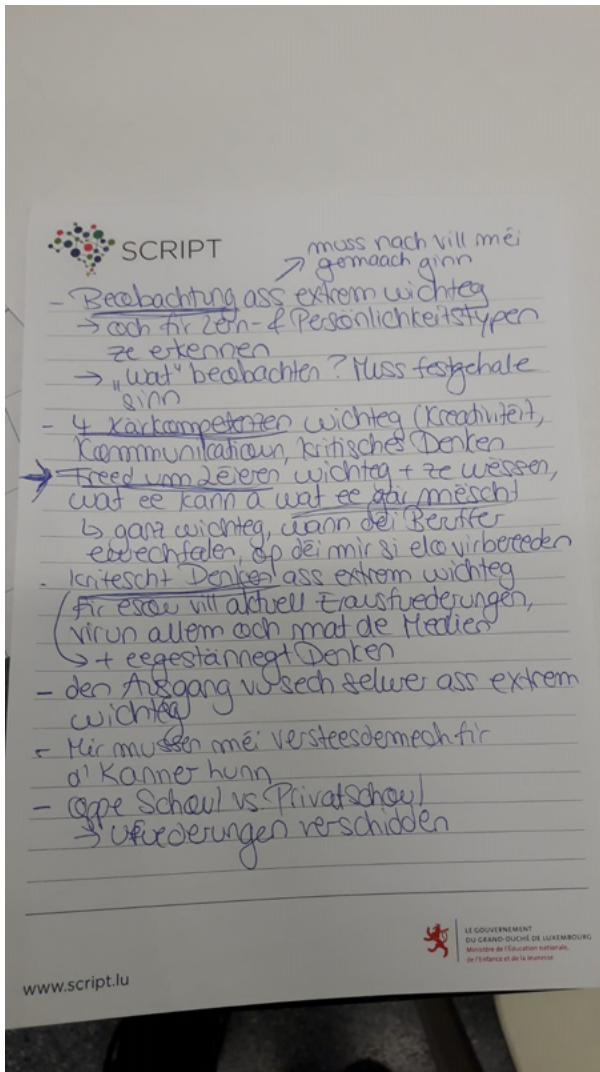 SCRIPT
muss nach vill méi
↗ gemaach ginn
- Beobachtung ass extrem wichteg
→ och fir Léin- & Persönlichkeitstypen
ze erkennen
→ „wat" beobachten? Muss festgehale
ginn
- 4 Kärkompetenzen wichteg (Kreativitéit,
Kommmunikatioun, kritisches Denken
→ Freed um Léieren wichteg + ze wëssen,
wat ee kann a wat ee gär mëscht
↳ ganz wichteg, wann déi Beruffer
ewechfalen, op déi mir si elo virbereeden
- Kritescht Denken ass extrem wichteg
fir esou vill aktuell Erausfuederungen,
virun allem och mat de Medien
↳ + eegestännegt Denken
- den Ausgang vu sech selwer ass extrem
wichteg
- Mir mussen méi versteesdemech fir
d'Kanner hunn
- oppe Schoul vs. Privatschoul
→ Ufuederungen verschidden
LE GOUVERNEMENT
DU GRAND-DUCHÉ DE LUXEMBOURG
Ministère de l'Éducation nationale,
de l'Enfance et de la Jeunesse
www.script.lu